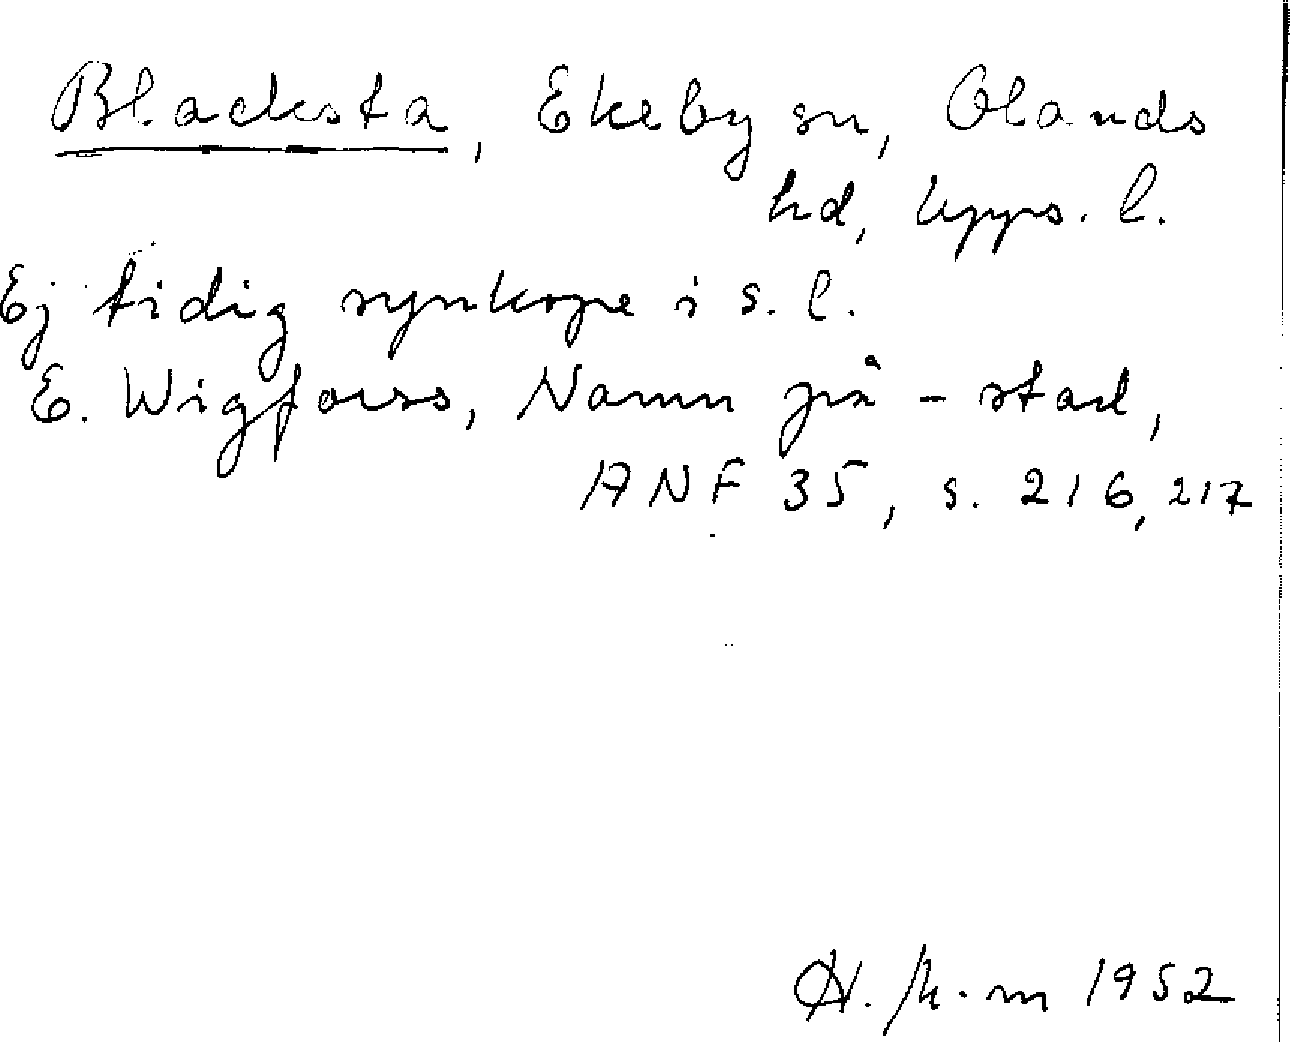 Blacksta, Ekeby sn, Olands
hd, Upps. l.
Ej tidig synkope i s. l.
E. Wigforss, Namn på - stad,
ANF 35, s. 216, 217
1952